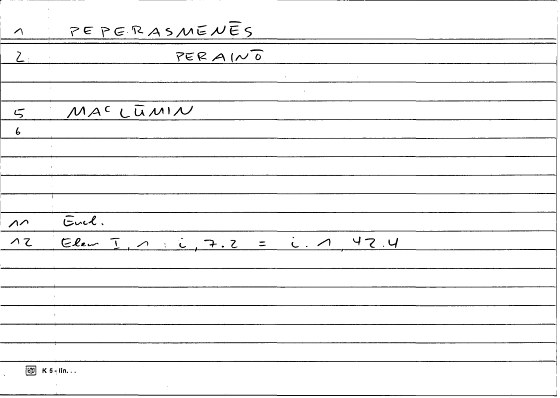 1 PEPERASMENĒS
2 PERAINŌ
5 MAᶜLŪMIN
6
11 Eucl.
12 Elem I, 1 : i, 7.2 = i. 1, 42.4
K 5 - lin...